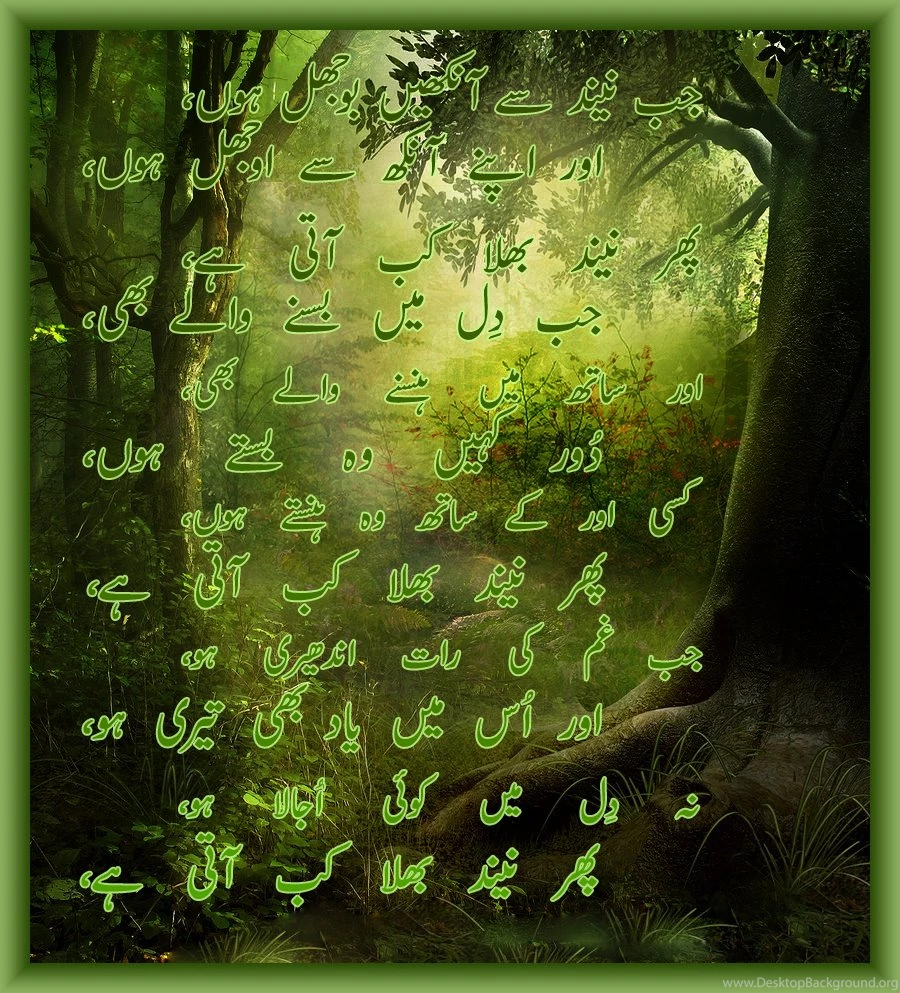 جب نیند سے آنکھیں بوجھل ہوں،
اور اپنے آنکھ سے اوجھل ہوں،
پھر نیند بھلا کب آتی ہے،
جب دِل میں بسنے والے بھی،
اور ساتھ میں ہنسنے والے بھی،
دُور کہیں وہ بستے ہوں،
کسی اور کے ساتھ وہ ہنستے ہوں،
پھر نیند بھلا کب آتی ہے،
جب غم کی رات اندھیری ہو،
اور اُس میں یاد بھی تیری ہو،
نہ دِل میں کوئی اُجالا ہو،
پھر نیند بھلا کب آتی ہے،
www.DesktopBackground.org